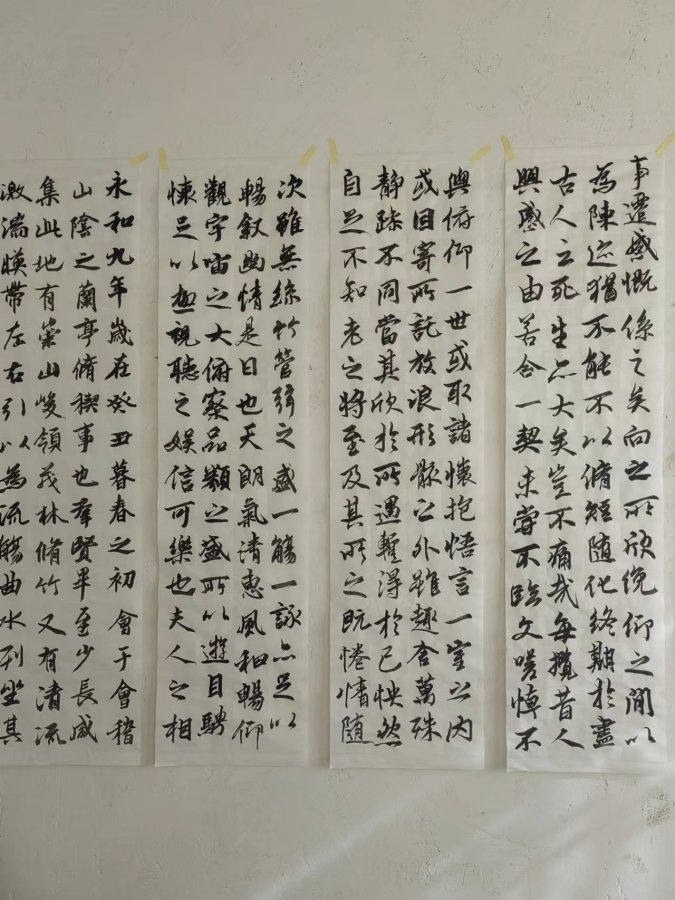 永和九年歲在癸丑暮春之初會于會稽
山陰之蘭亭脩稧事也羣賢畢至少長咸
集此地有崇山峻領茂林脩竹又有清流
激湍暎帶左右引以為流觴曲水列坐其
次雖無絲竹管弦之盛一觴一詠亦足以
暢敘幽情是日也天朗氣清惠風和暢仰
觀宇宙之大俯察品類之盛所以遊目騁
懷足以極視聽之娛信可樂也夫人之相
與俯仰一世或取諸懷抱悟言一室之內
或因寄所託放浪形骸之外雖趣舍萬殊
靜躁不同當其欣於所遇暫得於己怏然
自足不知老之將至及其所之既惓情隨
事遷感慨係之矣向之所欣俛仰之間以
為陳迹猶不能不以脩短隨化終期於盡
古人云死生亦大矣豈不痛哉每攬昔人
興感之由若合一契未嘗不臨文嗟悼不